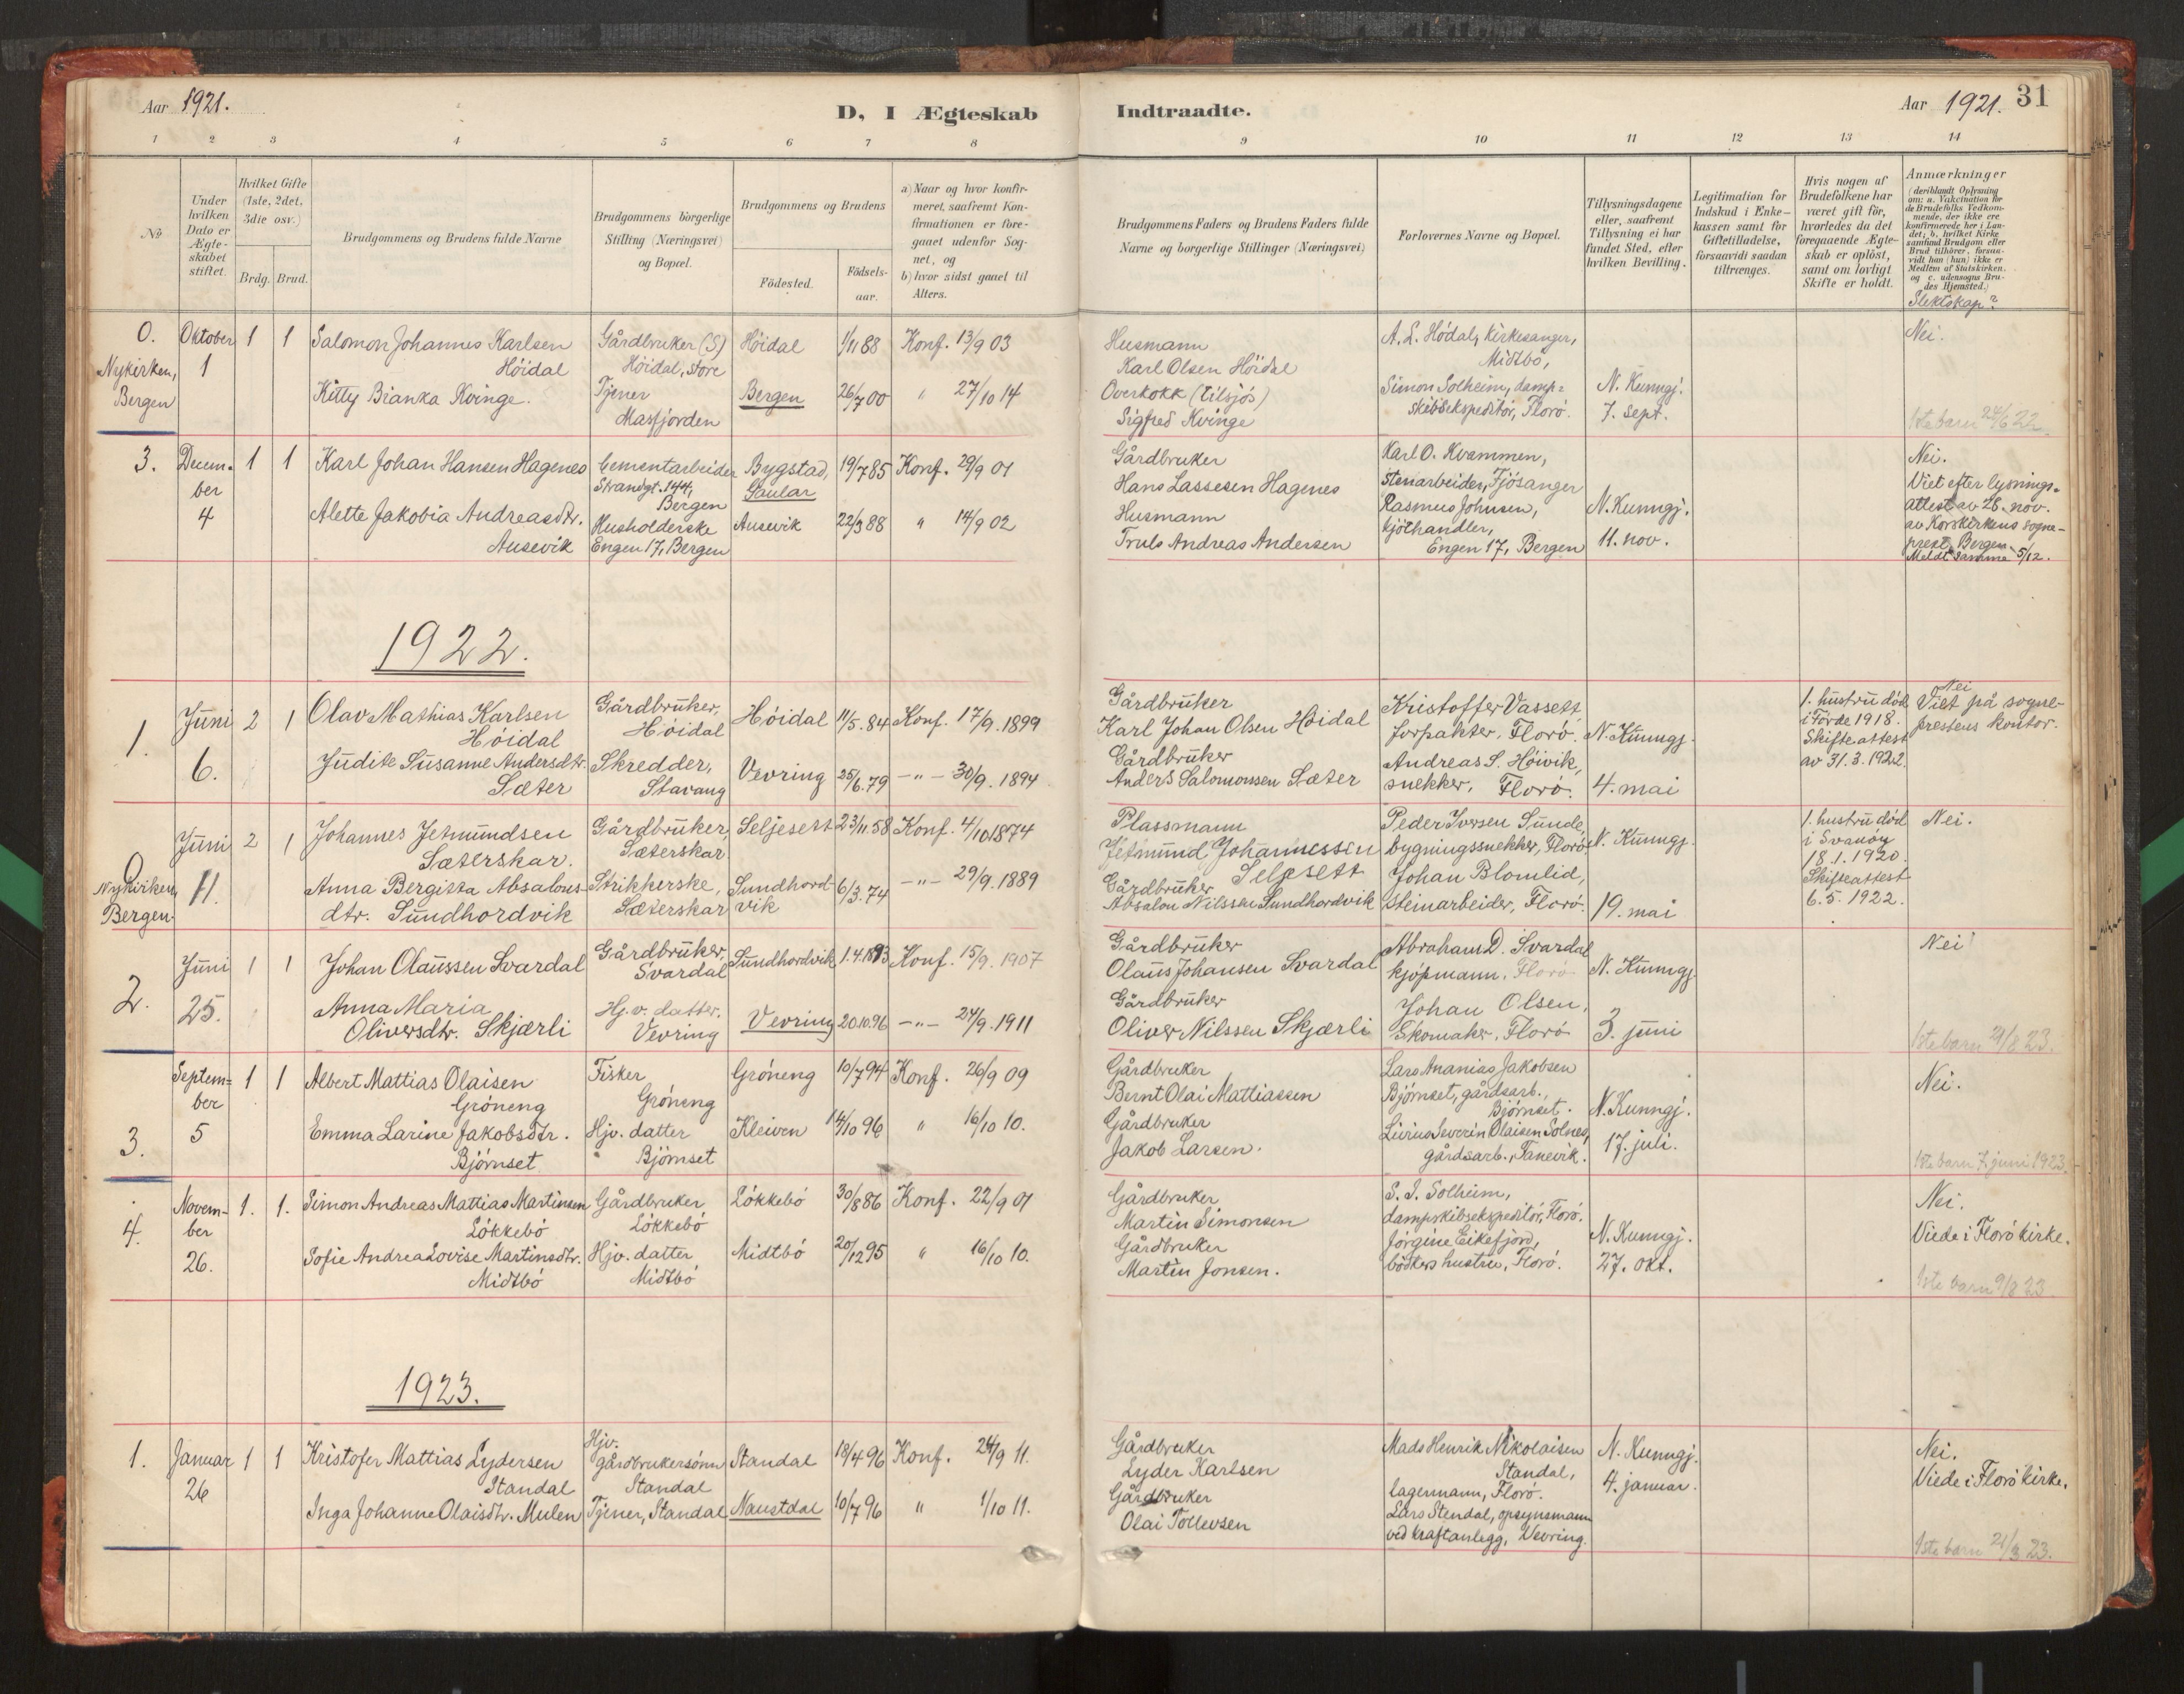 Aar 1921.
D, I Ægteskab
Indtraadte.
Aar 1921. 31
1 2 3 4 5 6 7 8 9 10 11 12 13 14
No
Under hvilken Dato er Ægte-skabet stiftet.
Hvilket Gifte (1ste, 2det, 3die osv.)
Brdg. Brud.
Brudgommens og Brudens fulde Navne
Brudgommens borgerlige Stilling (Næringsvei) og Bopæl.
Brudgommens og Brudens
Födested.
Födsels-aar.
a) Naar og hvor konfir-meret, saafremt Kon-firmationen er fore-gaaet udenfor Sog-net, og
b) hvor sidst gaaet til Alters.
Brudgommens Faders og Brudens Faders fulde Navne og borgerlige Stillinger (Næringsvei)
Forlovernes Navne og Bopæl.
Tillysningsdagene eller, saafremt Tillysning ei har fundet Sted, efter hvilken Bevilling.
Legitimation for Indskud i Enke-kassen samt for Giftetilladelse, forsaavidt saadan tiltrænges.
Hvis nogen af Brudefolkene har været gift för, hvorledes da det foregaaende Ægte-skab er oplöst, samt om lovligt Skifte er holdt.
Anmærkninger
(deriblandt Oplysning om: a. Vakcination for de Brudefolks Vedkom-mende, der ikke ere konfirmerede her i Lan-det; b. hvilket Kirke-samfund Brudgom eller Brud tilhörer, forsaa-vidt han (hun) ikke er Medlem af Statskirken. og c. udensogns Bru-des Hjemsted.)
Slektskap?
0. Nykirken, Bergen
Oktober 1
1 1
Salomon Johannes Karlsen Höidal
Gårdbruker (S) Höidal, store
Höidal 1/11 88 Konf. 13/9 03
Husmann
Karl Olsen Höidal
A. L. Hödal, kirkesanger, Midtbö,
Nei.
Kitty Bianka Kvinge.
Tjener Masfjorden
Bergen 26/7 00 " 27/10 14
Overkokk (tilsjös)
Sigfred Kvinge
Simon Solheim, damp-skibsekspeditör, Florö.
N. Kunngj. 7. sept.
1ste barn 24/6 22.
3. Decem-ber 4
1 1
Karl Johan Hansen Hagenes
Cementarbeider Strandgt. 144, Bergen
Bygstad, Gaular 19/7 85 Konf. 29/9 01
Gårdbruker
Hans Lassesen Hagenes
Karl O. Kvammen, Stenarbeider, Fjösanger
Alette Jakobia Andreasdtr. Ausevik
Husholderske Engen 17, Bergen
Ausevik 22/3 88 " 14/9 02
Husmann
Truls Andreas Andersen
Rasmus Johnsen, kjöthandler, Engen 17, Bergen
N. Kunngj. 11. nov.
Nei.
Viet efter lysnings-attest av 28. nov. av Korskirkens sogne-prest, Bergen. Meldt samme 5/12.
1922.
1. Juni 6.
2 1
Olav Mathias Karlsen Höidal
Gårdbruker, Höidal
Höidal 11/5. 84 Konf. 17/9. 1899
Gårdbruker
Karl Johan Olsen Höidal
Kristoffer Vassett, forpakter, Florö.
Judite Susanne Andersdtr. Sæter
Skredder, Stavang
Vevring 25/6. 79 -"- 30/9. 1894
Gårdbruker
Anders Salomonssen Sæter
Andreas S. Höivik, snekker, Florö.
N. Kunngj. 4. mai
1. hustru död i Förde 1918. Skifteattest av 31. 3. 1922.
Nei
Viet på sogne-prestens kontor.
0 Nykirken, Bergen
Juni 11.
2 1
Johannes Jetmundsen Sæterskar.
Gårdbruker, Sæterskar
Seljesett 23/11. 58 Konf. 4/10 1874
Plassmann
Jetmund Johannessen Seljesett
Peder Iversen Sunde, bygningssnekker, Florö.
Anna Bergitta Absalons-dtr. Sundhordvik
Strikkerske, Sæterskar
Sundhord-vik 6/3. 74 -"- 29/9. 1889
Gårdbruker
Absalon Nilssen Sundhordvik
Johan Blomlid, steinarbeider, Florö.
N. Kunngj. 19. mai
1. hustru död i Svanöy 18. 1. 1920. Skifteattest 6. 5. 1922.
Nei.
2. Juni 25.
1 1
Johan Olaüssen Svardal
Gårdbruker, Svardal
Sundhordvik 1. 4. 1893 Konf. 15/9. 1907
Gårdbruker
Olaüs Johansen Svardal
Abraham D. Svardal kjöpmann, Florö
Anna Maria Oliversdtr. Skjærli
Hj.v. datter. Vevring
Vevring 20.10.96 -"- 24/9. 1911
Gårdbruker
Oliver Nilssen Skjærli
Johan Olsen, Skomaker, Florö
N. Kunngj. 3. juni
Nei
1ste barn 21/8 23.
3. Septem-ber 5
1 1
Albert Mattias Olaisen Gröneng
Fisker Gröneng
Gröneng 10/7 94 Konf. 26/9 09
Gårdbruker
Bernt Olai Mattiassen
Lars Ananias Jakobsen Björnset, gårdsarb., Björnset.
Emma Larine Jakobsdtr. Björnset
Hjv. datter Björnset
Kleiven 14/10 96 " 16/10 10.
Gårdbruker
Jakob Larsen.
Livius Severin Olaisen Solnes, gårdsarb., Tanevik.
N. Kunngj. 17. juli.
Nei.
1ste barn 7. juni 1923.
4. Novem-ber 26.
1. 1.
Simon Andreas Mattias Martinsen Lökkebö
Gårdbruker Lökkebö
Lökkebö 30/8 86 Konf. 22/9 01
Gårdbruker
Martin Simonsen
S. J. Solheim, dampskibsekspeditör, Florö.
Sofie Andrea Lovise Martinsdtr. Midtbö
Hjv. datter Midtbö
Midtbö 20/12 95 " 16/10 10.
Gårdbruker
Martin Jonsen.
Jörgine Eikefjord, bödkers hustru, Florö.
N. Kunngj. 27. okt.
Nei.
Viede i Florö kirke.
1ste barn 9/8 23
1923.
1. Januar 26
1 1
Kristofer Mattias Lydersen Standal
Hjv. gårdbrukersönn Standal
Standal 18/4 96 Konf. 24/9 11.
Gårdbruker
Lyder Karlsen
Mads Henrik Nikolaisen Standal, lagermann, Florö.
Inga Johanne Olaisdtr. Mulen
Tjener, Standal
Naustdal 10/7 96 " 1/10 11.
Gårdbruker
Olai Tollevsen
Lars Stendal, opsynsmann ved kraftanlegg, Vevring.
N. Kunngj. 4. januar.
Nei.
Viede i Florö kirke.
1ste barn 21/3 23.